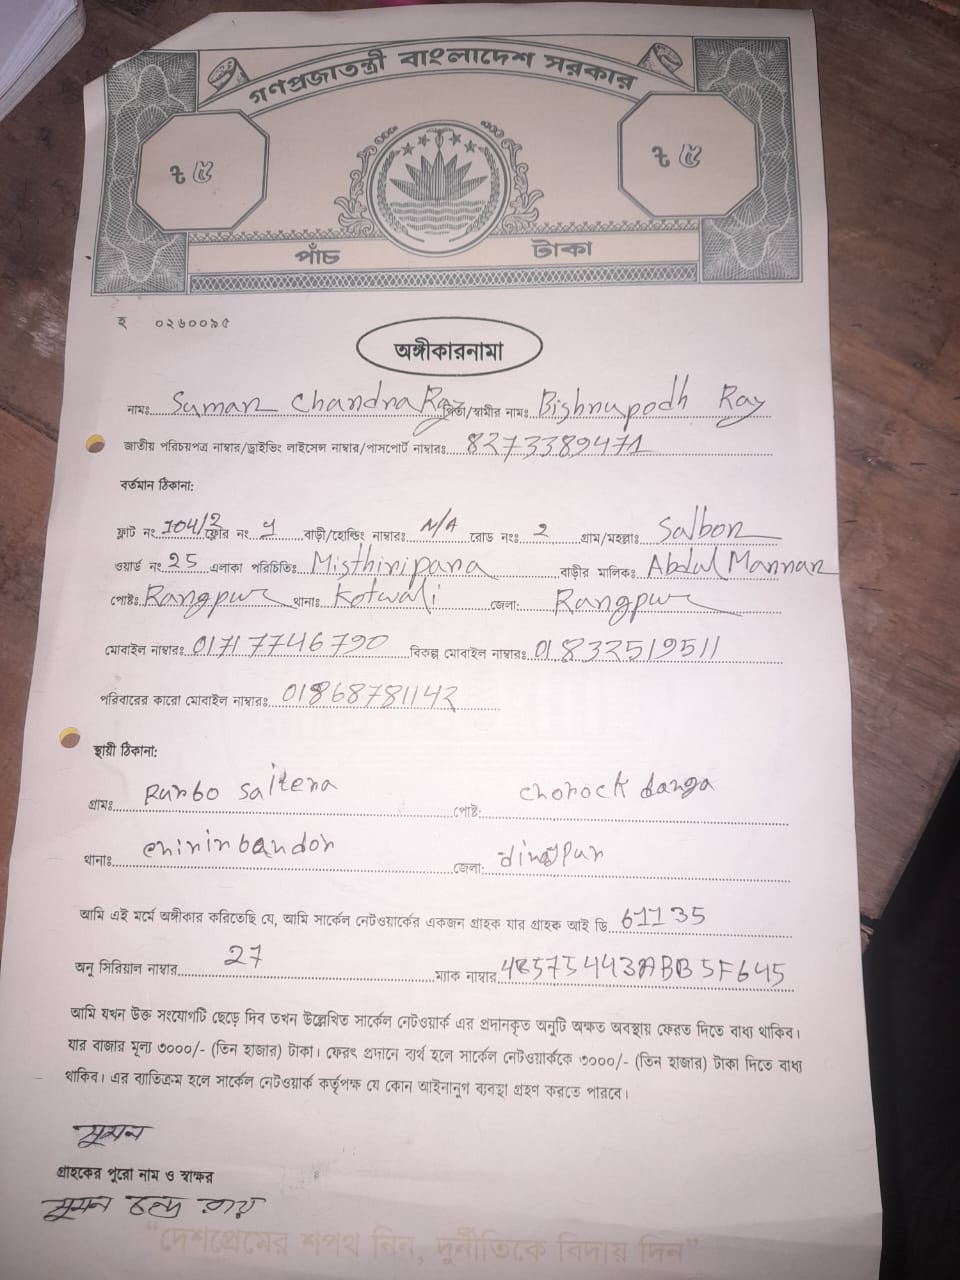 গণপ্রজাতন্ত্রী বাংলাদেশ সরকার
৳ ৫
৳ ৫
পাঁচ টাকা
হ ০২৬০০৯৫
অঙ্গীকারনামা
নামঃ Suman Chandra Ray পিতা/স্বামীর নামঃ Bishnupodh Ray
জাতীয় পরিচয়পত্র নাম্বার/ড্রাইভিং লাইসেন্স নাম্বার/পাসপোর্ট নাম্বারঃ 8273389471
বর্তমান ঠিকানা:
ফ্লাট নং 104/2 ফ্লোর নং বাড়ী/হোল্ডিং নাম্বারঃ N/A রোড নংঃ 2 গ্রাম/মহল্লাঃ Salbon
ওয়ার্ড নং 25 এলাকা পরিচিতিঃ Misthiripara বাড়ীর মালিকঃ Abdul Mannan
পোষ্টঃ Rangpur থানাঃ Kotwali জেলা: Rangpur
মোবাইল নাম্বারঃ 01717746790 বিকল্প মোবাইল নাম্বারঃ 01832519511
পরিবারের কারো মোবাইল নাম্বারঃ 01868781142
স্থায়ী ঠিকানা:
গ্রামঃ Purbo Saitera পোষ্ট: chorock danga
থানাঃ chirirbandor জেলা: dinajpur
আমি এই মর্মে অঙ্গীকার করিতেছি যে, আমি সার্কেল নেটওয়ার্কের একজন গ্রাহক যার গ্রাহক আই ডি 61135
অনু সিরিয়াল নাম্বার 27 ম্যাক নাম্বার 48575443ABB5F645
আমি যখন উক্ত সংযোগটি ছেড়ে দিব তখন উল্লেখিত সার্কেল নেটওয়ার্ক এর প্রদানকৃত অনুটি অক্ষত অবস্থায় ফেরত দিতে বাধ্য থাকিব।
যার বাজার মূল্য ৩০০০/- (তিন হাজার) টাকা। ফেরৎ প্রদানে ব্যর্থ হলে সার্কেল নেটওয়ার্ককে ৩০০০/- (তিন হাজার) টাকা দিতে বাধ্য
থাকিব। এর ব্যতিক্রম হলে সার্কেল নেটওয়ার্ক কর্তৃপক্ষ যে কোন আইনানুগ ব্যবস্থা গ্রহণ করতে পারবে।
সুমন
গ্রাহকের পুরো নাম ও স্বাক্ষর
সুমন চন্দ্র রায়
"দেশপ্রেমের শপথ নিন, দুর্নীতিকে বিদায় দিন"